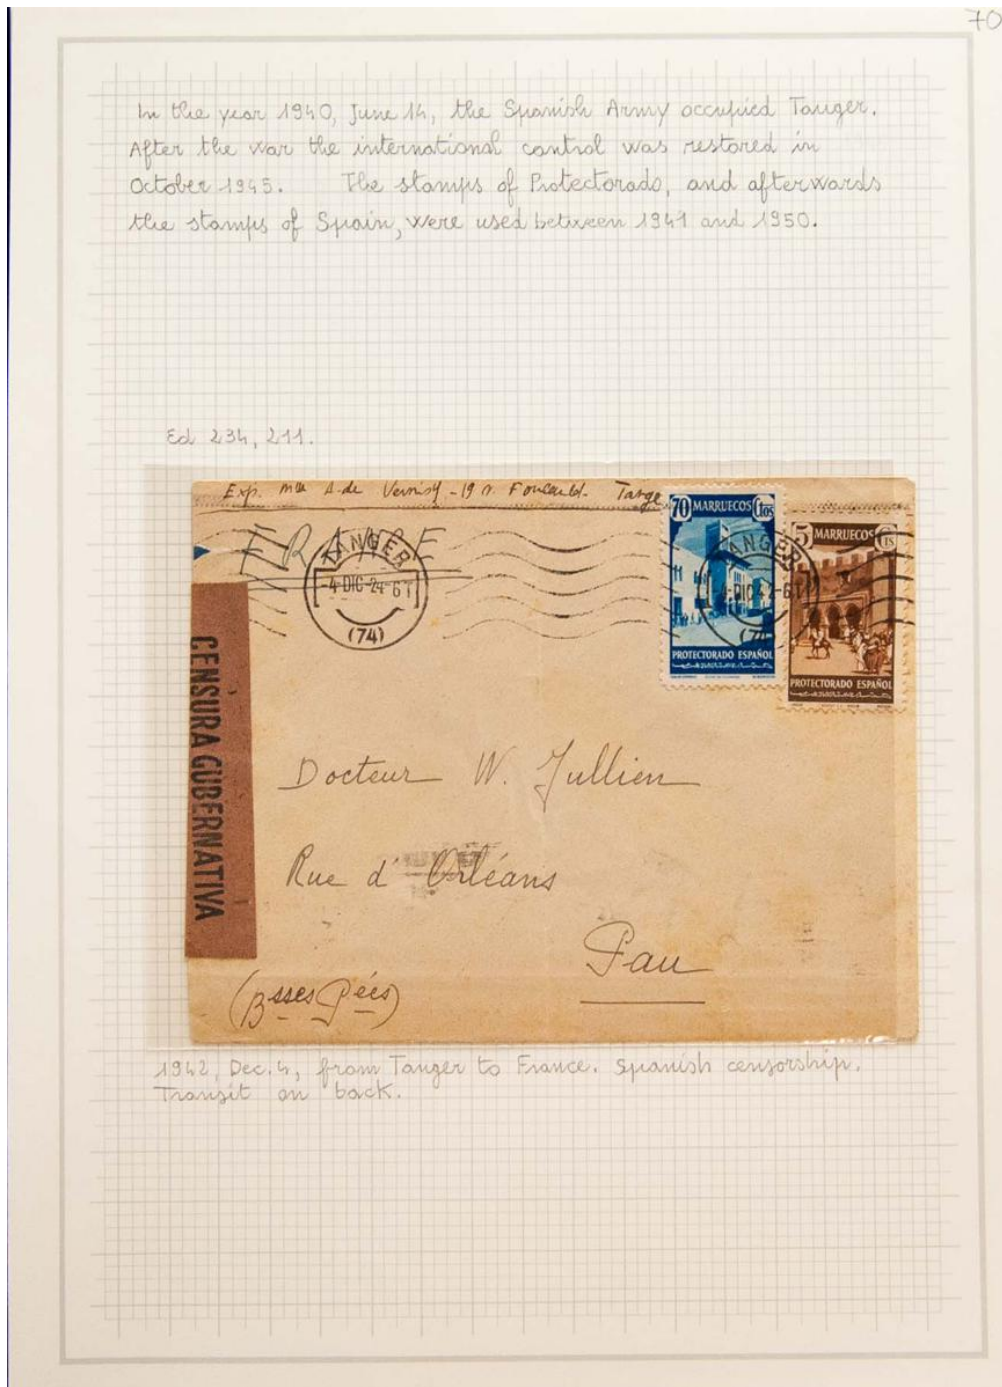 70
In the year 1940, June 14, the Spanish Army occupied Tanger.
After the war the international control was restored in
October 1945. The stamps of Protectorado, and afterwards
the stamps of Spain, were used between 1941 and 1950.
Ed 234, 211.
Exp. Mme A. de Vernisy - 19 r. Foucauld. Tange
FRANCE
TANGER
4-DIC-24-6T
(74)
70 MARRUECOS Ctos
PROTECTORADO ESPAÑOL
TANGER
4-DIC42-6T
(74)
5 MARRUECOS Cts
PROTECTORADO ESPAÑOL
CENSURA GUBERNATIVA
Docteur W. Jullien
Rue d'Orléans
Pau
(Bsses Pées)
1942, Dec. 4, from Tanger to France. Spanish censorship.
Transit on back.